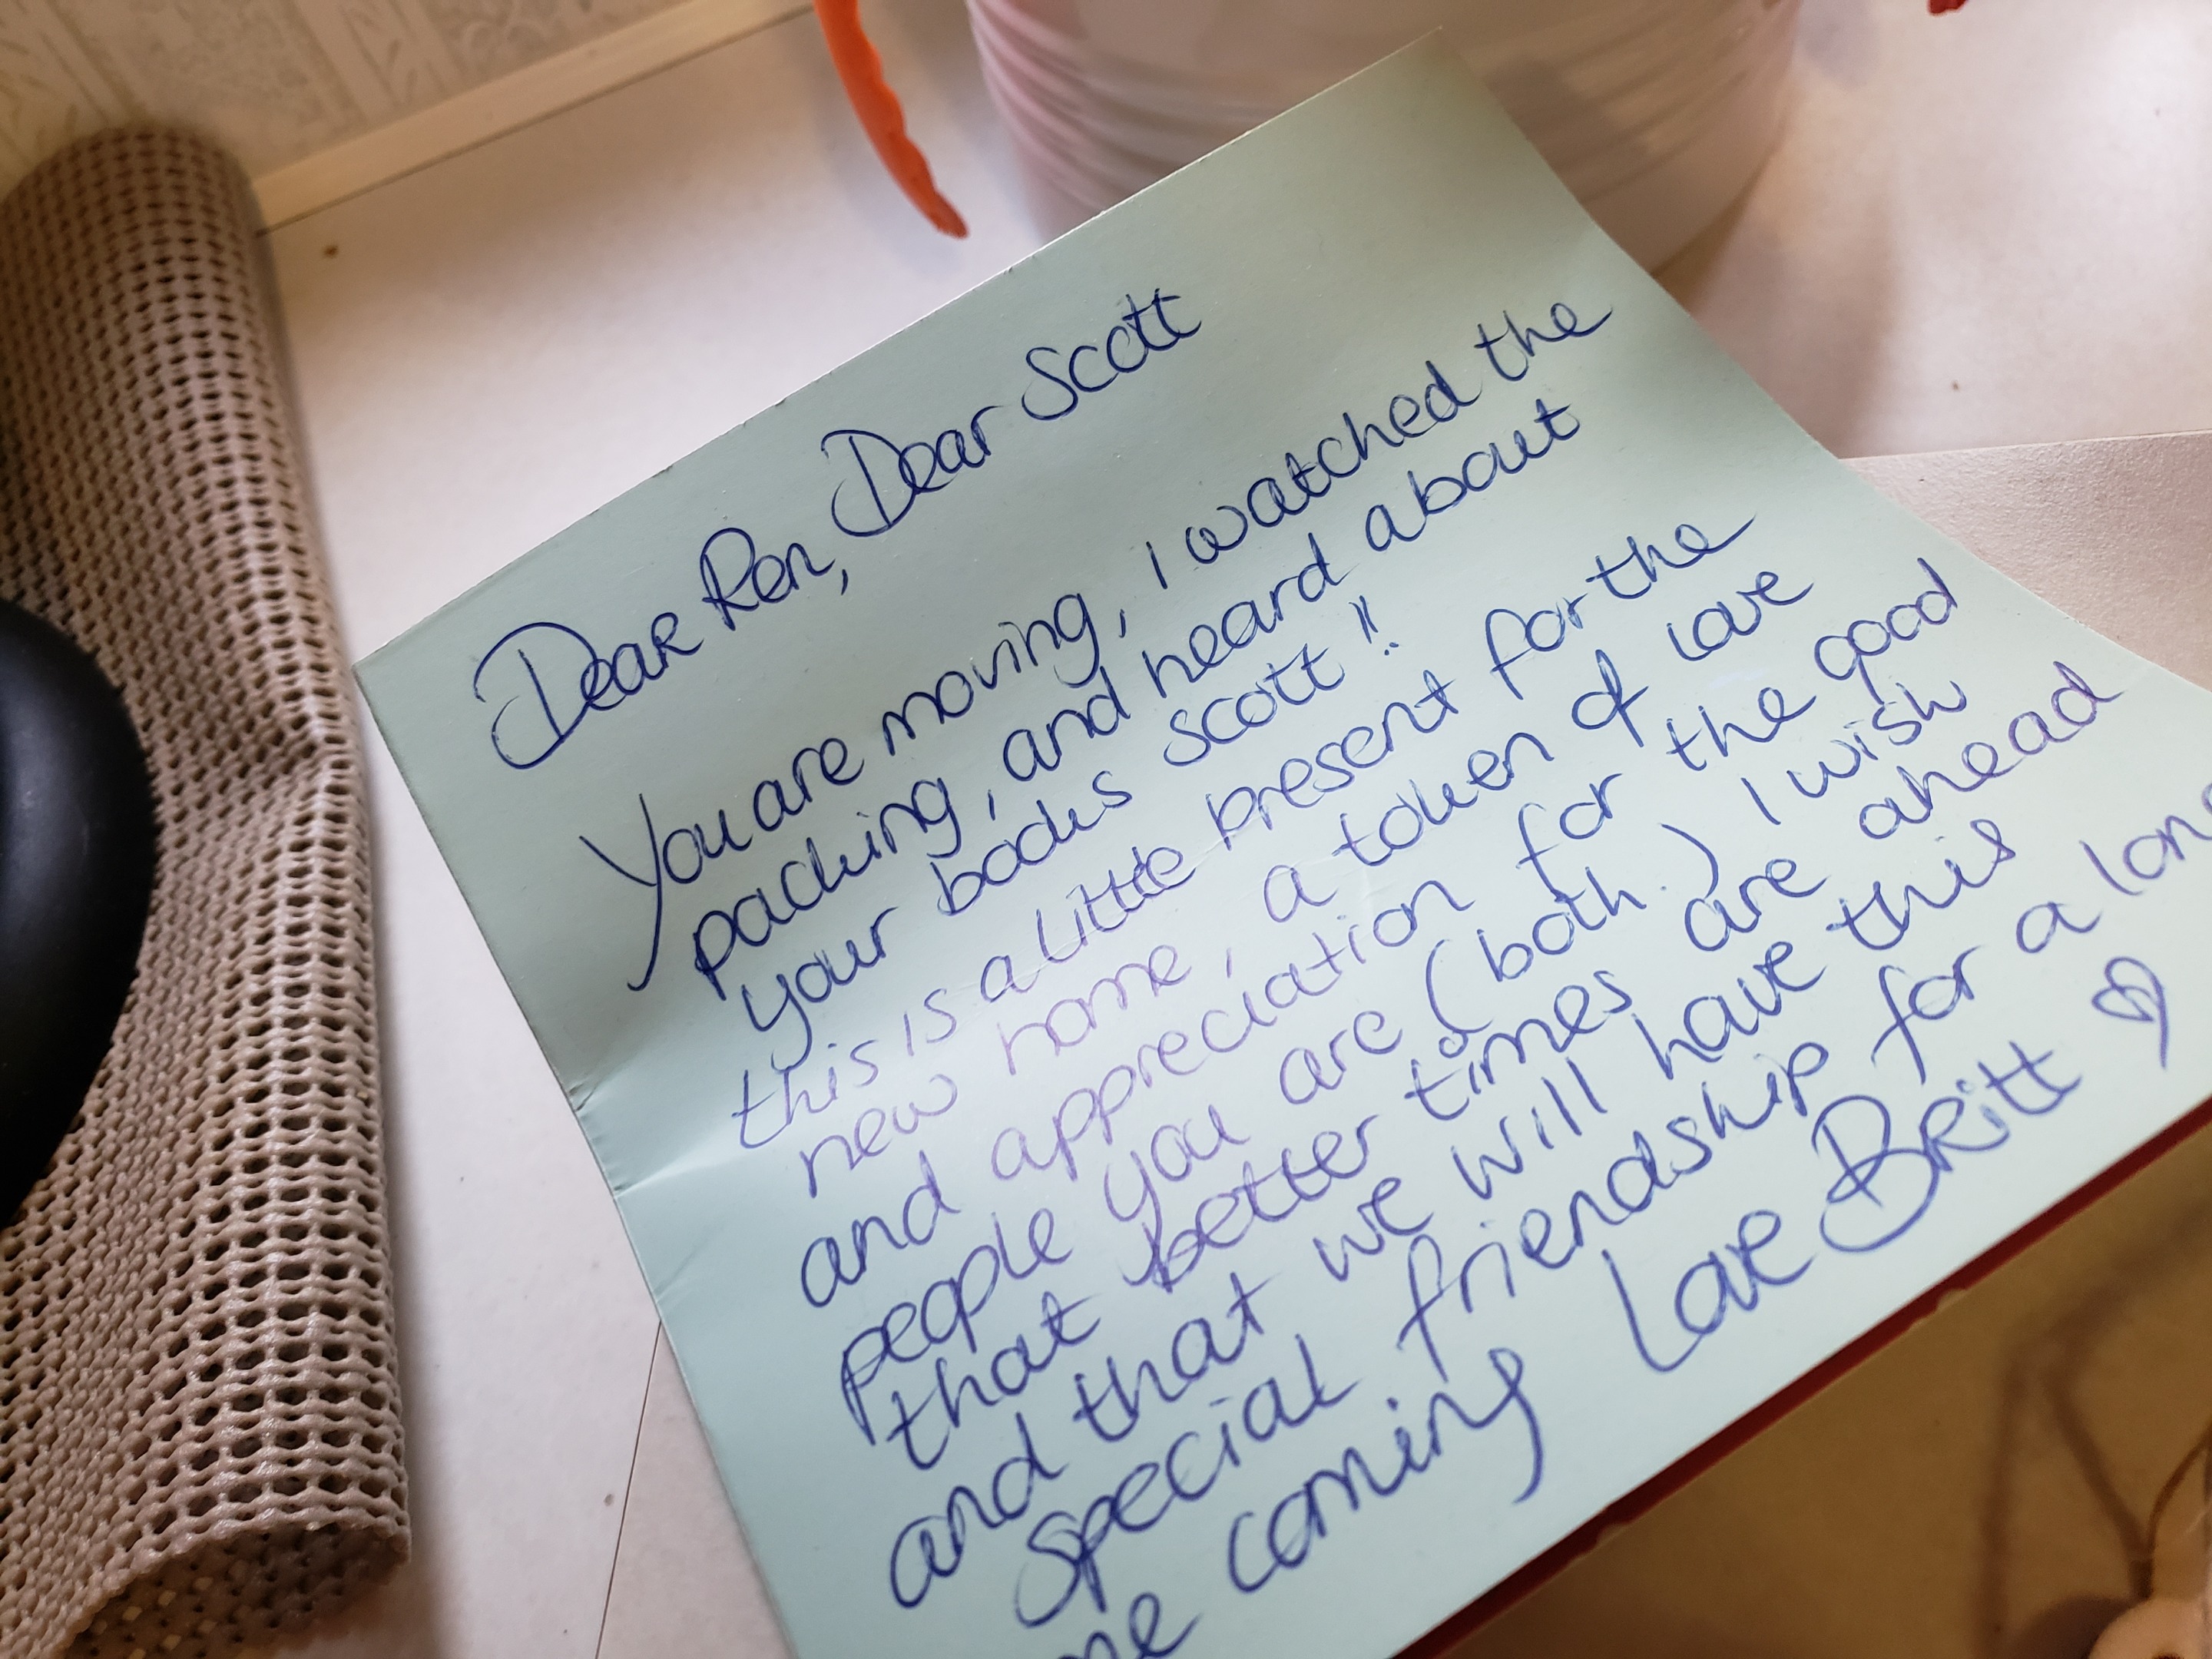 Dear Ren, Dear Scott
You are moving, I watched the
packing, and heard about
your books Scott!!
this is a little present for the
new home, a token of love
and appreciation for the good
people you are (both.) I wish
that better times are ahead
and that we will have this
special friendship for a long
coming Love Britt